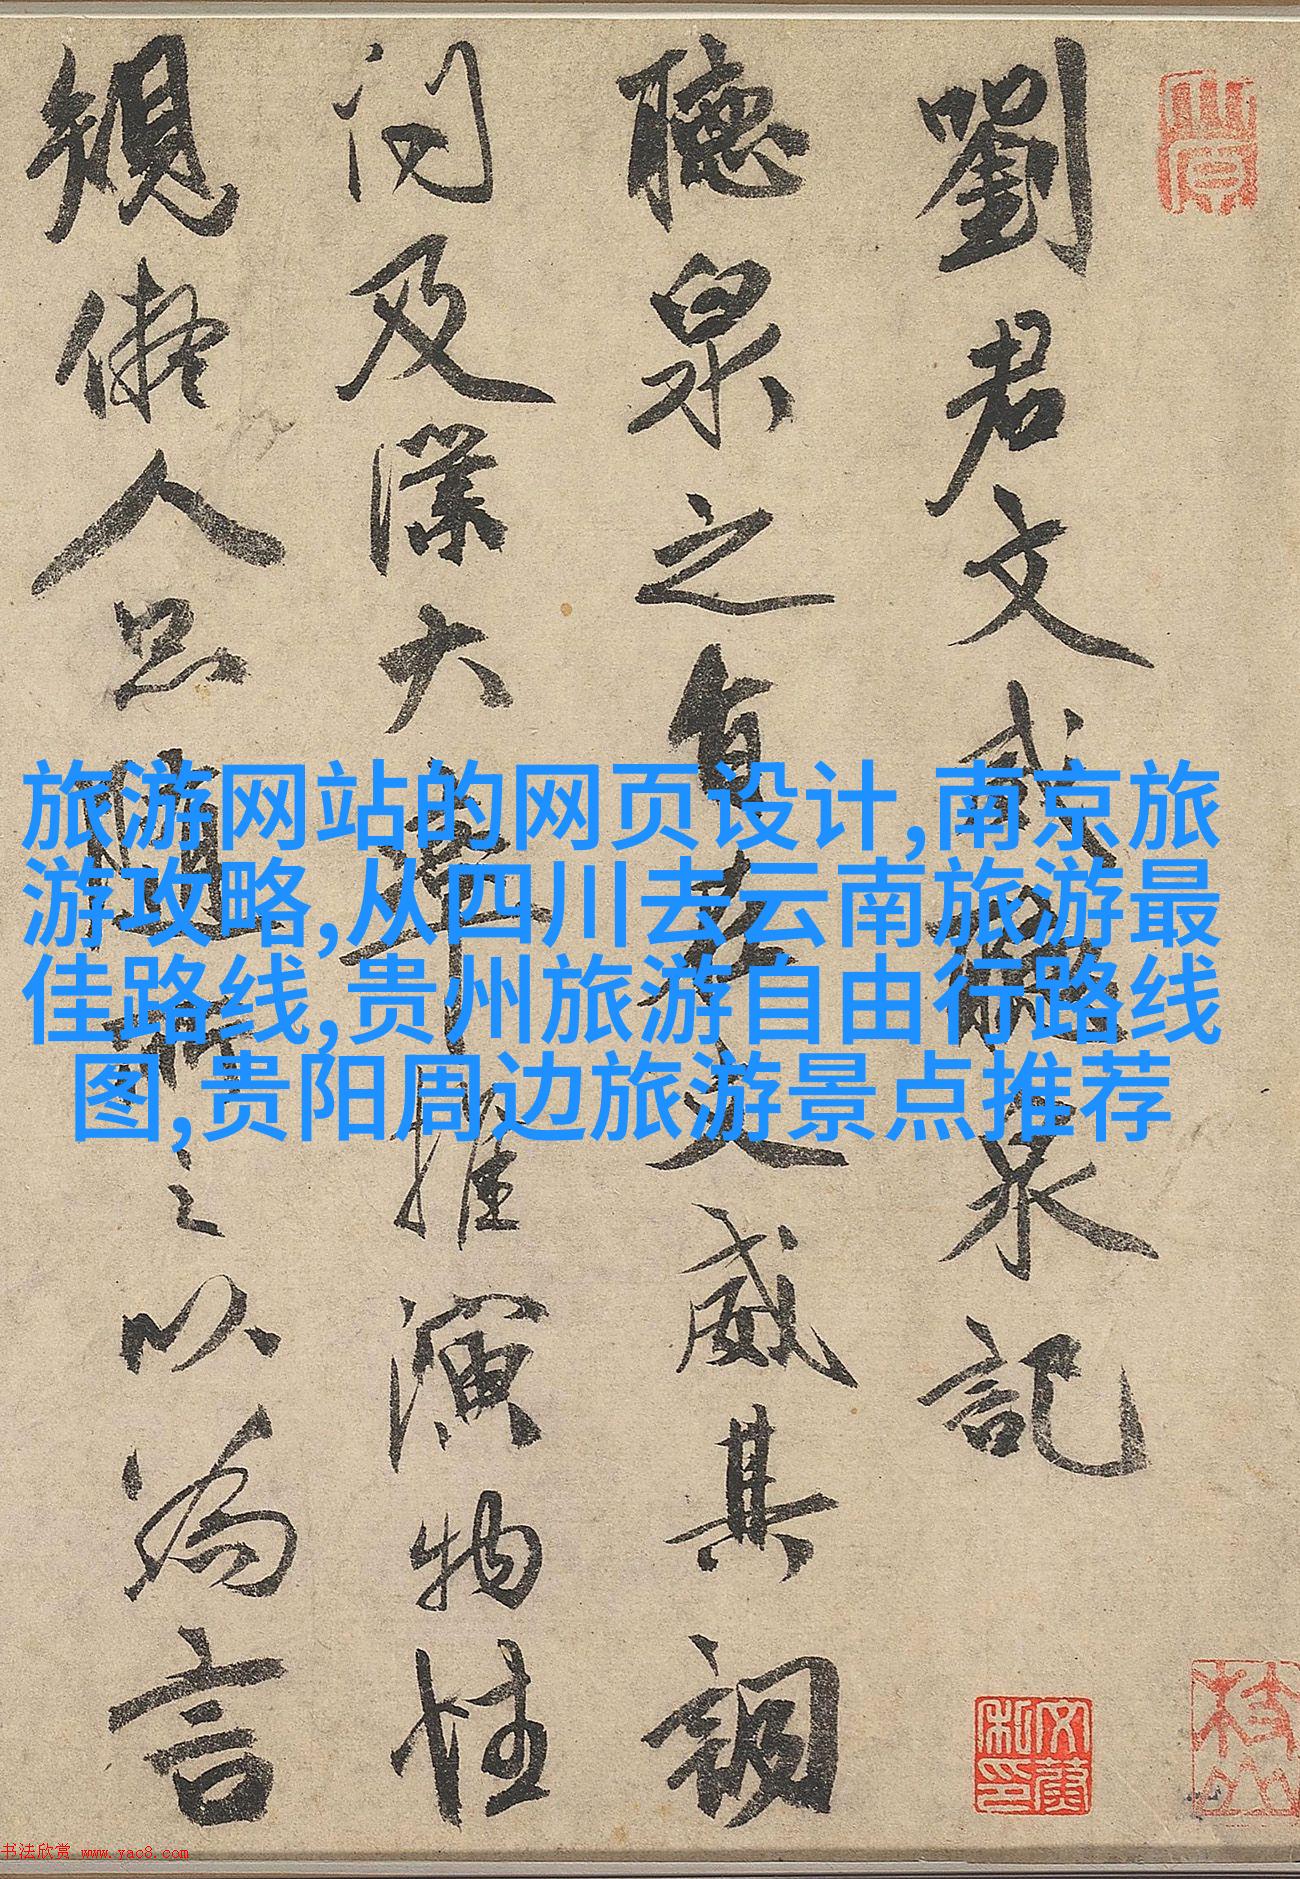 劉君文威聽泉記
聽泉之有若文威其調
及深大率推演物性
儗人品之以為言
旅游网站的网页设计,南京旅
游攻略,从四川去云南旅游最
佳路线,贵州旅游自由行路线
图,贵阳周边旅游景点推荐
书法欣赏 www.yac8.com